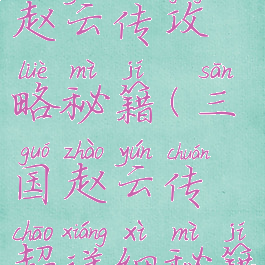 赵云传攻
lüè mì jí sān
略秘籍(三
guó zhào yún chuán
国赵云传
chāo xiáng xì mì jí
超详细秘籍